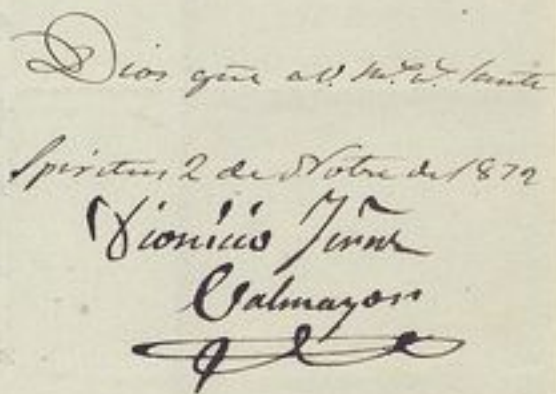 Dios gue a V. m.s a.s Santi
Spiritus 2 de Novbre de 1872
Dionicio
Valmayor